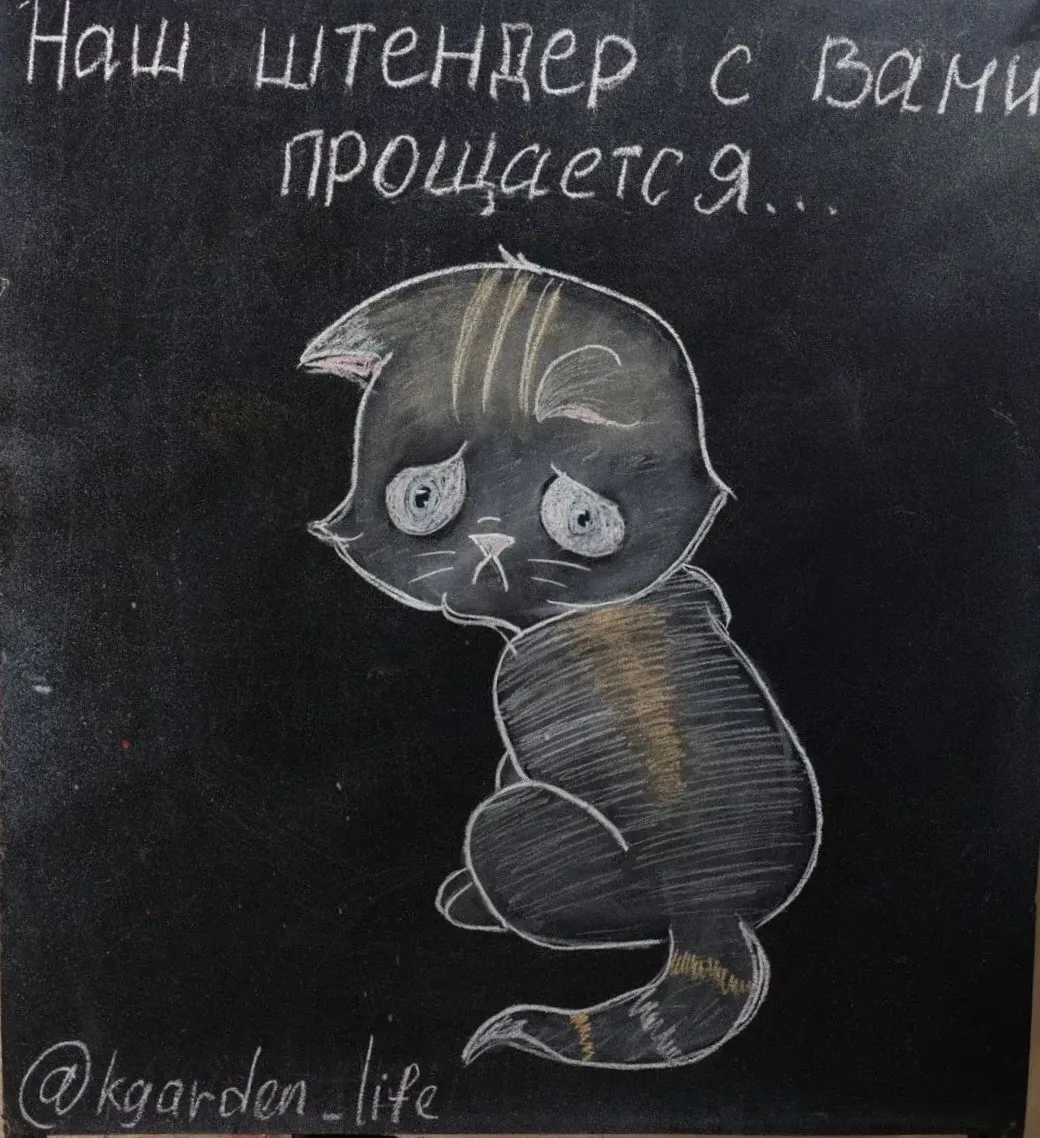 Наш штендер с Вами
прощается...
@kgarden_life